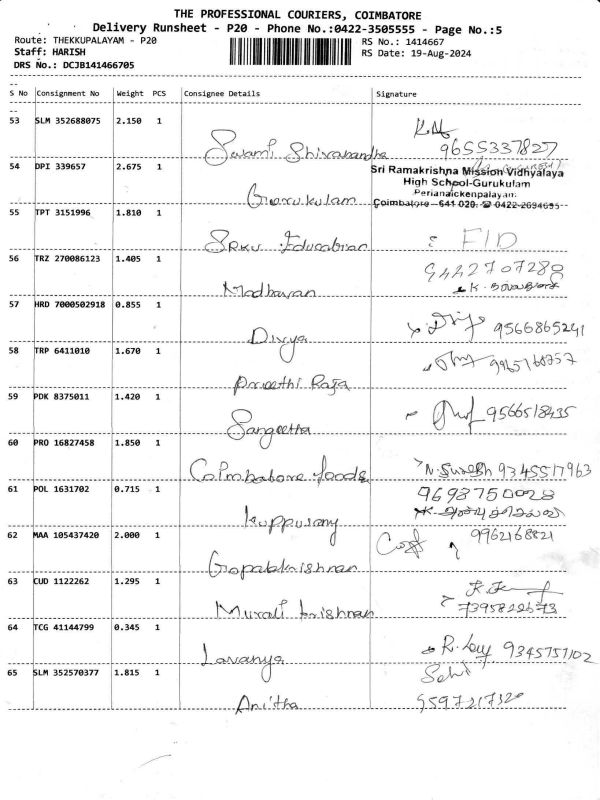 THE PROFESSIONAL COURIERS, COIMBATORE
Delivery Runsheet - P20 - Phone No.:0422-3505555 - Page No.:5
Route: THEKKUPALAYAM - P20
RS No.: 1414667
Staff: HARISH
RS Date: 19-Aug-2024
DRS No.: DCJB141466705
S No Consignment No Weight PCS Consignee Details Signature
53 SLM 352688075 2.150 1
Swami Shivanandha
9655337827
54 DPI 339657 2.675 1
Gurukulam
Sri Ramakrishna Mission Vidhyalaya
High School-Gurukulam
Perianaickenpalayam
Coimbatore - 641 020. ☎ 0422-2694695
55 TPT 3151996 1.810 1
SRKV Education
: FID
56 TRZ 270086123 1.405 1
Madhavan
9442707280
57 HRD 7000502918 0.855 1
Divya
9566865241
58 TRP 6411010 1.670 1
Preethi Raja
59 PDK 8375011 1.420 1
Sangeetha
9566518435
60 PRO 16827458 1.850 1
Coimbatore foods
N. Suresh 9345517963
61 POL 1631702 0.715 1
Kuppusamy
9698750028
62 MAA 105437420 2.000 1
Gopalakrishnan
9962168821
63 CUD 1122262 1.295 1
Murali krishnan
7395822673
64 TCG 41144799 0.345 1
Lavanya
9345757102
65 SLM 352570377 1.815 1
Anitha